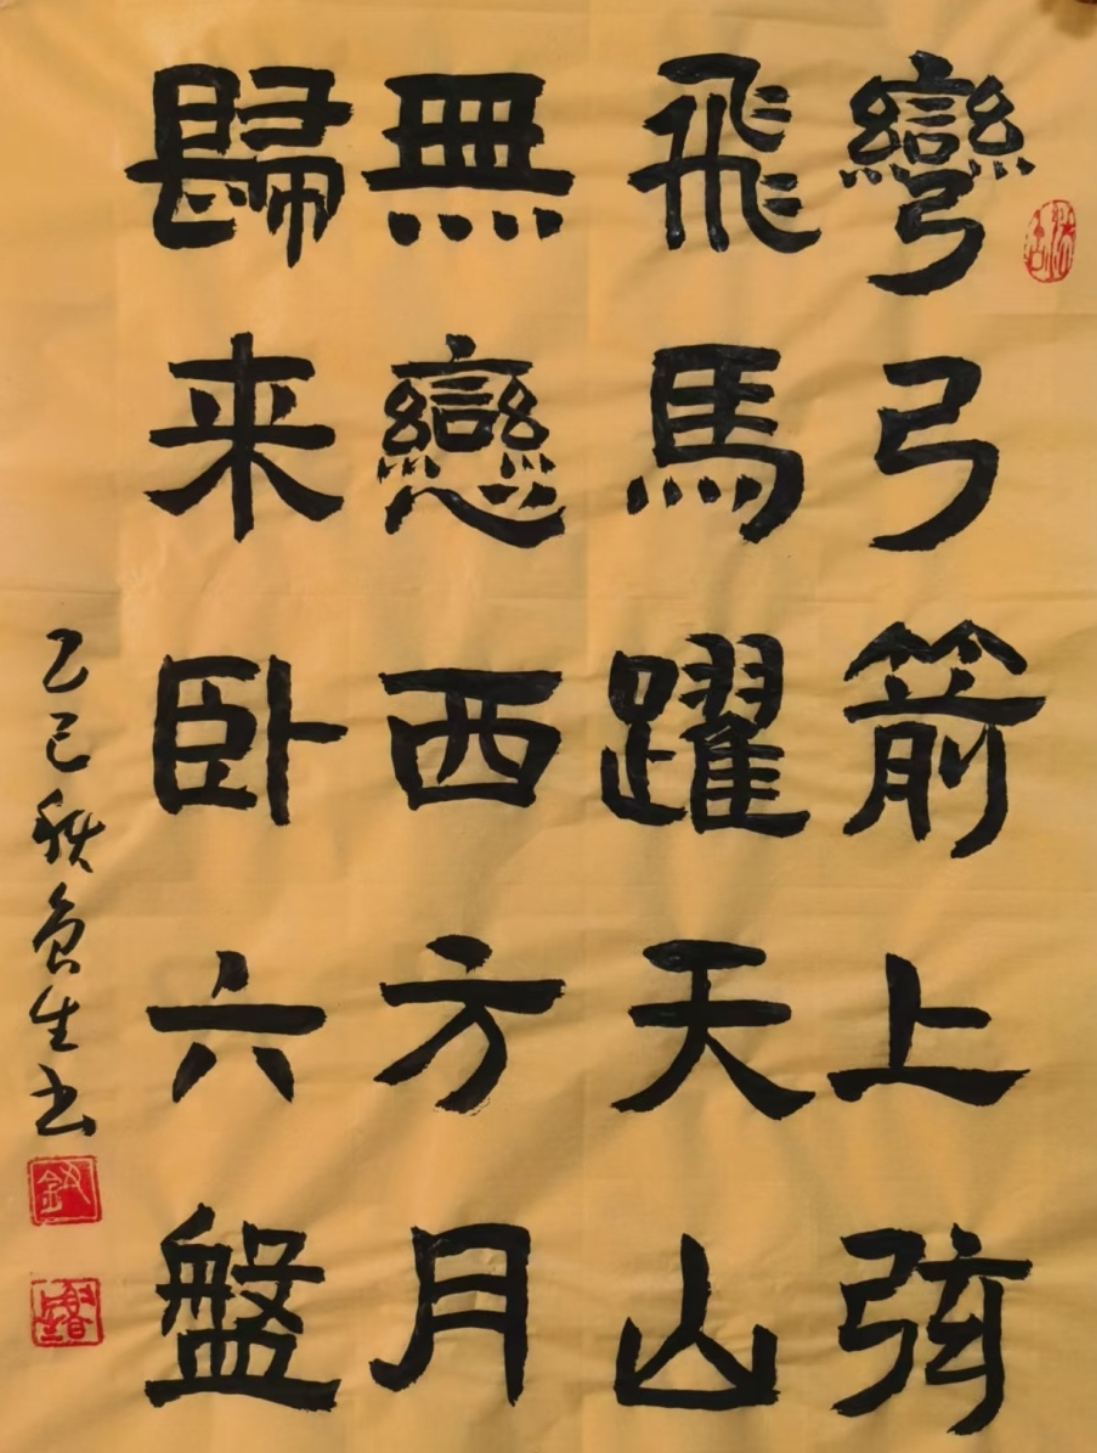 彎弓箭上弦
飛馬躍天山
無戀西方月
歸来卧六盤
乙巳秋負生书